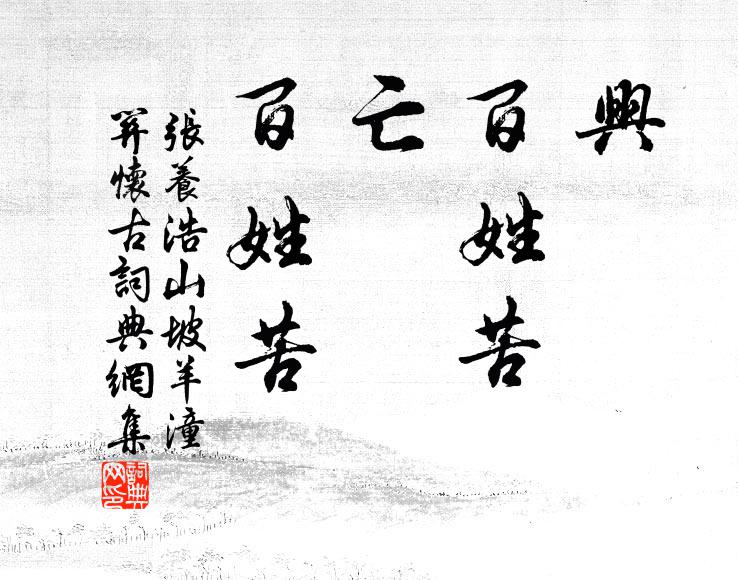 興
百姓苦
亡
百姓苦
張養浩山坡羊潼
關懷古詞典網集
詞典网印